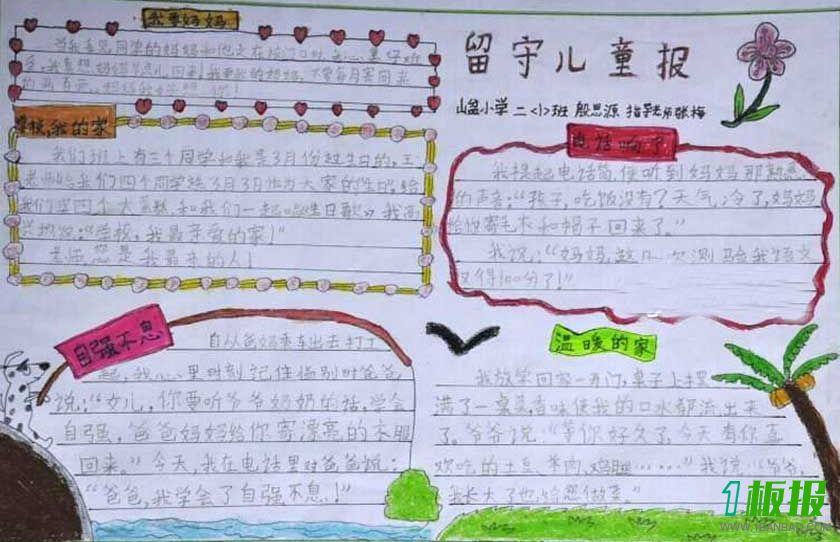 我要妈妈
当我看见同学的妈妈和他走在校门口时,心里好难
受,我真想妈妈
的两百元,妈妈我好想你!
留守儿童报
山盆小学 二〈1〉班 殷思源 指导老师张梅
学校,我的家
我们班上有三个同学和我是3月份过生日的,王
老师给我们四个同学把3月3日作为大家的生日给
我们买四个大蛋糕,和我们一起唱《生日歌》我高
兴地说:“学校,我最亲爱的家!”
老师,您是我最亲的人!
电话响了
我提起电话筒,便听到妈妈那熟悉
的声音:“孩子,吃饭没有?天气冷了,妈妈
给你寄毛衣和帽子回来了。”
我说:“妈妈,这几次测验我语文
又得100分了!”
自强不息
自从爸妈乘车出去打工
起,我心里时刻记住临别时爸爸
说:“女儿,你要听爷爷奶奶的话,学会
自强,爸爸妈妈给你寄漂亮的衣服
回来。”今天,我在电话里对爸爸说:
“爸爸,我学会了自强不息!”
温暖的家
我放学回家一开门,桌子上摆
满了一桌菜,香味使我的口水都流出来
了。爷爷说:“等你好久了,今天有你喜
欢吃的土豆、羊肉,鸡腿……”我说:“爷爷,
我长大了也给您做菜。”
1板报
WWW.1BANBAO.COM